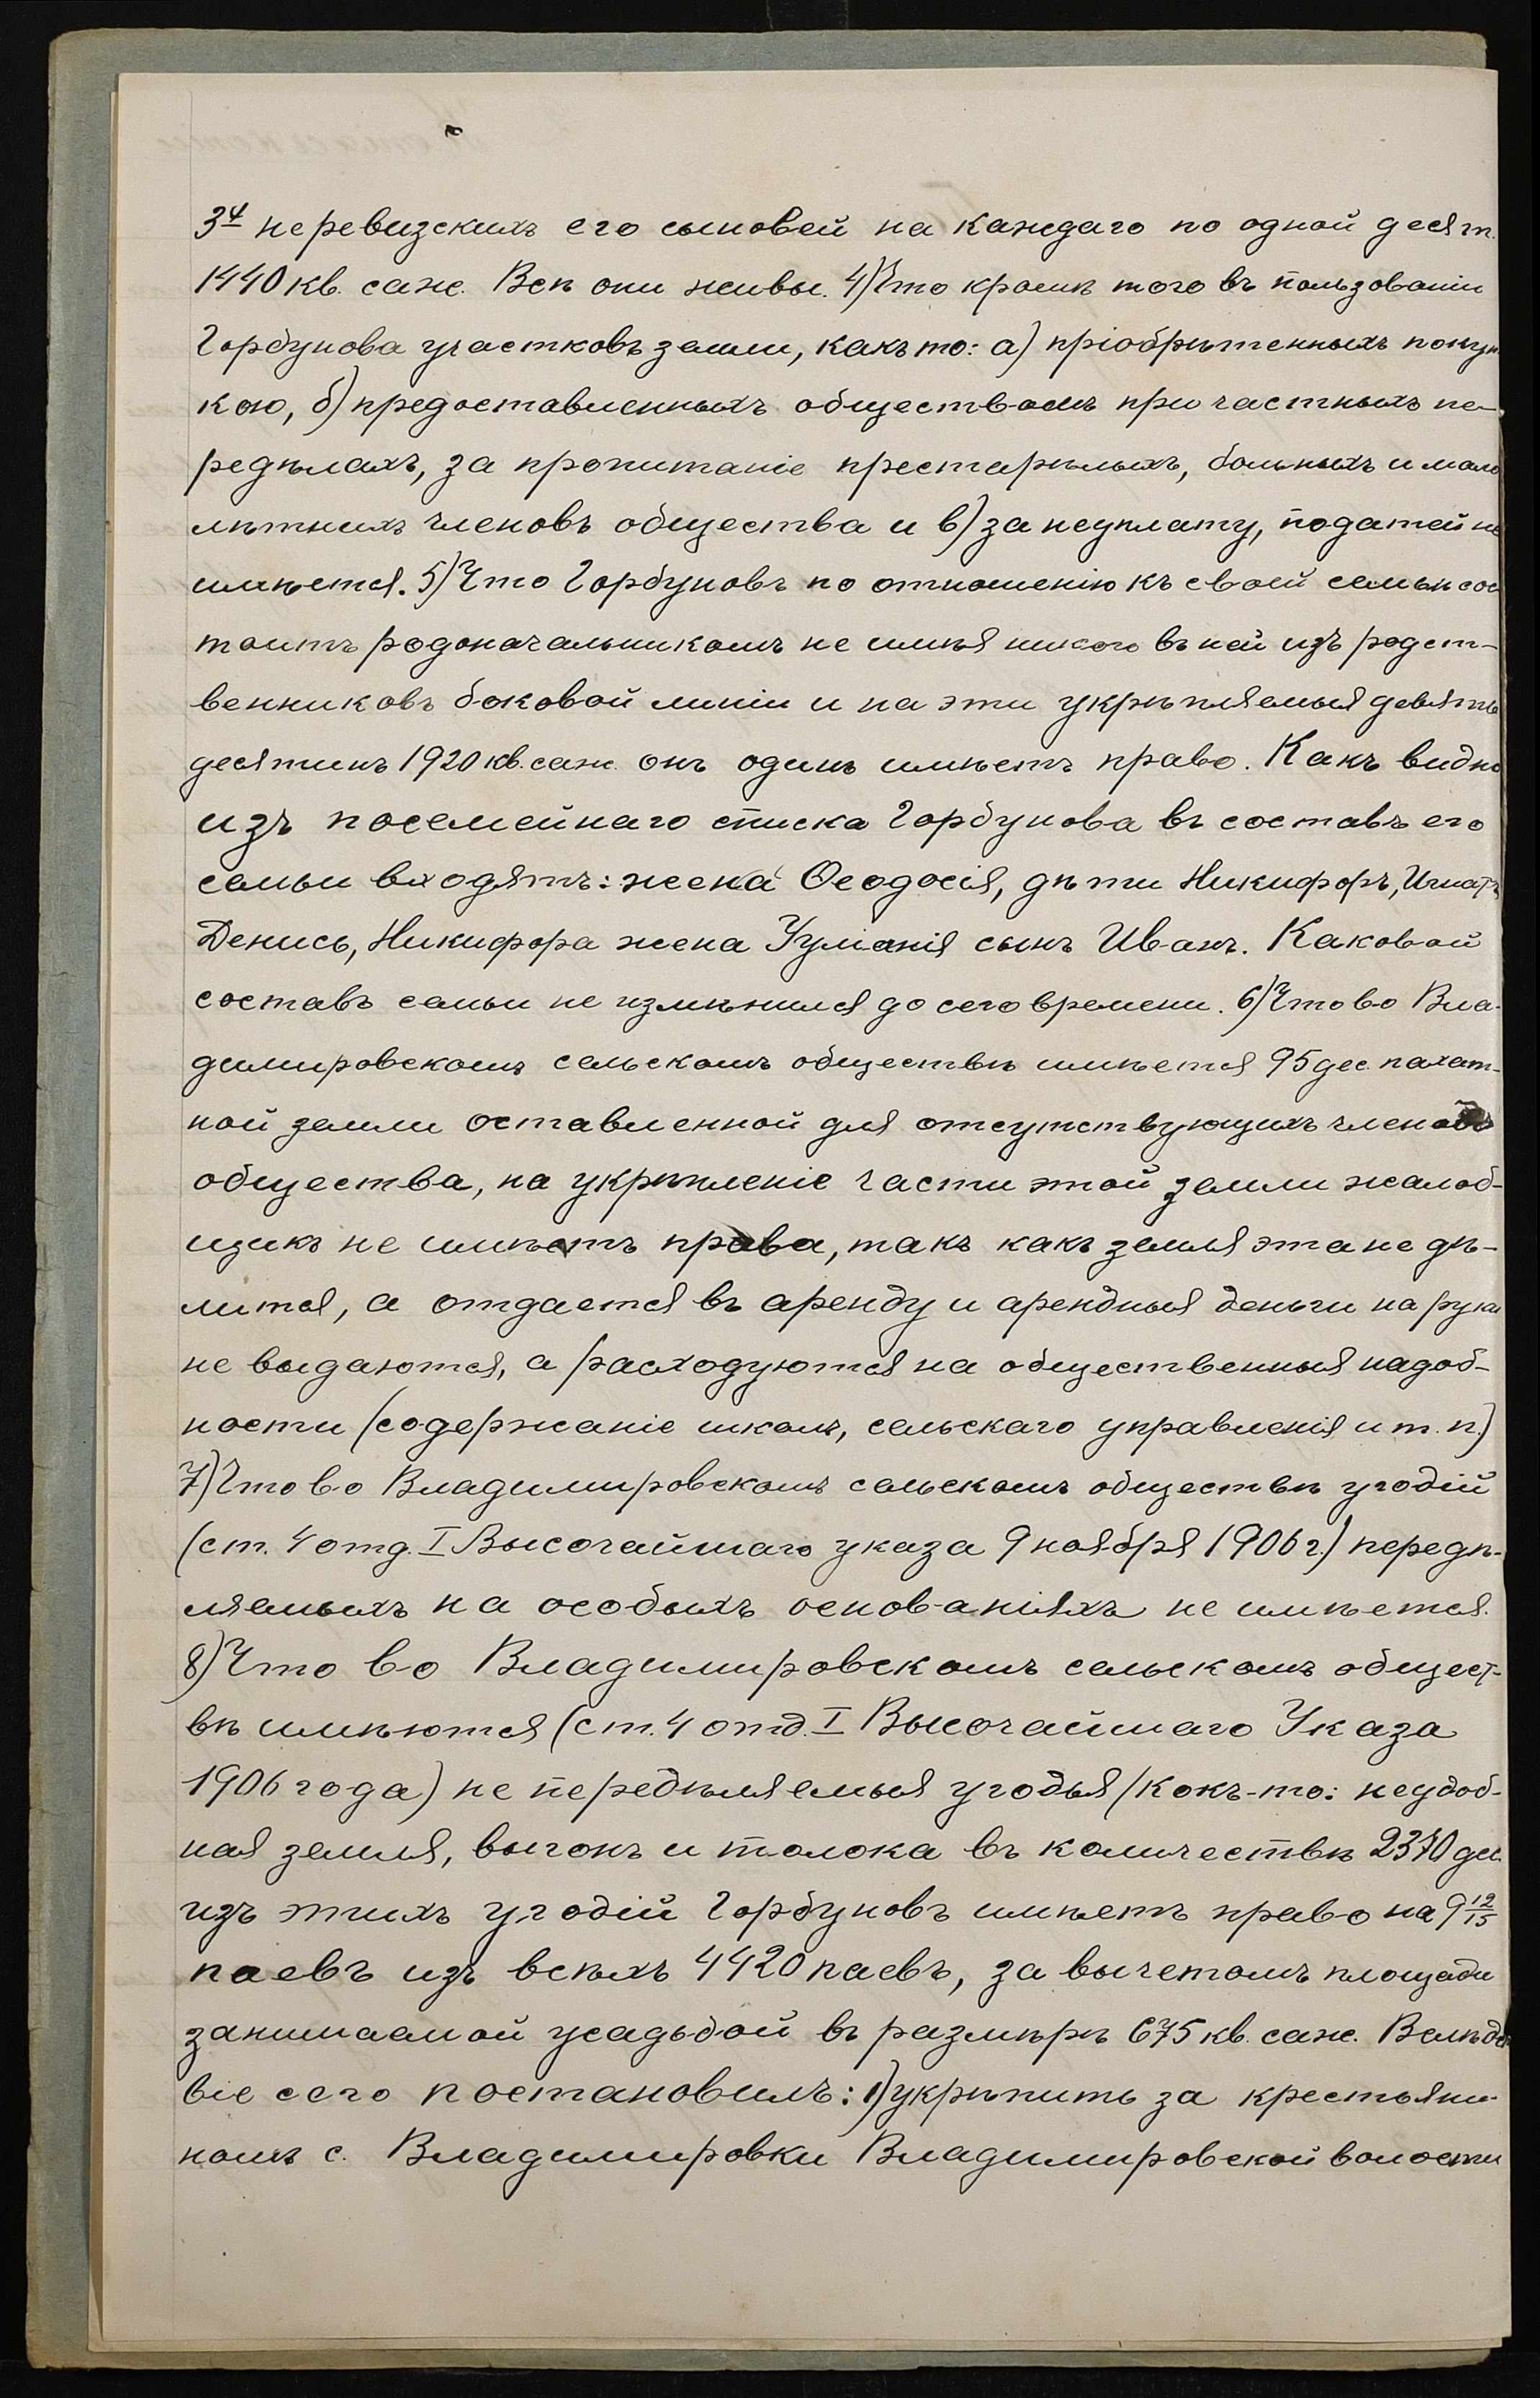 3⁴ неревизскихъ его сыновей на каждаго по одной десят.
1440 кв. саж. Всѣ они живы. 4) Что кромѣ того въ пользованіи
Горбунова участковъ земли, какъ то: а) пріобрѣтенныхъ покуп
кою, б) предоставленныхъ обществомъ при частныхъ пе-
редѣлахъ, за пропитаніе престарѣлыхъ, больныхъ и мало
лѣтнихъ членовъ общества и в) за неуплату, податей не
имѣется. 5) Что Горбуновъ по отношенію къ своей семьѣ сос
тоитъ родоначальникомъ не имѣя никого въ ней изъ родст-
венниковъ боковой линіи и на эти укрѣпляемыя девять
десятинъ 1920 кв. саж. онъ одинъ имѣетъ право. Какъ видно
изъ посемейнаго списка Горбунова въ составъ его
семьи входятъ: жена Ѳеодосія, дѣти Никифоръ, Игнатъ,
Денисъ, Никифора жена Уліанія сынъ Иванъ. Каковой
составъ семьи не измѣнился до сего времени. 6) Что во Вла-
димировскомъ сельскомъ обществѣ имѣется 95 дес. пахат-
ной земли оставленной для отсутствующихъ членовъ
общества, на укрѣпленіе части этой земли жалоб-
щикъ не имѣетъ права, такъ какъ земля эта не дѣ-
лится, а отдается въ аренду и арендныя деньги на руки
не выдаются, а расходуются на общественныя надоб-
ности (содержаніе школъ, сельскаго управленія и т. п.)
7) Что во Владимировскомъ сельскомъ обществѣ угодій
(ст. 4 отд. I Высочайшаго указа 9 ноября 1906 г.) передѣ-
ляемыхъ на особыхъ основаніяхъ не имѣется.
8) Что во Владимировскомъ сельскомъ общест-
вѣ имѣются (ст. 4 отд. I Высочайшаго Указа
1906 года) не передѣляемыя угодья (кокъ-то: неудоб-
ная земля, выгонъ и толока въ количествѣ 2370 дес.
изъ этихъ угодій Горбуновъ имѣетъ право на 9 12/15
паевъ изъ всѣхъ 4420 паевъ, за вычетомъ площади
занимаемой усадьбой въ размѣрѣ 675 кв. саж. Вслѣдс
віе сего постановилъ: 1) укрѣпить за крестьяни-
номъ с. Владимировки Владимировской волости